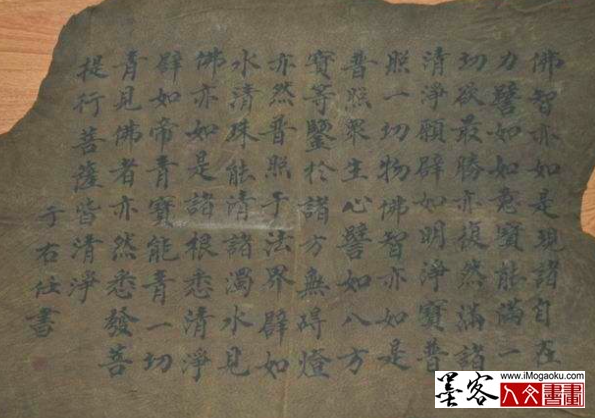 佛智亦如是現諸自在
力譬如如意寶能滿一
切欲最勝亦復然滿諸
清淨願辟如明淨寶普
照一切物佛智亦如是
普照眾生心譬如八方
寶等鑒於諸方無碍燈
亦然普照于法界辟如
水清珠能清諸濁水見
佛亦如是諸根悉清淨
辟如帝青寶能青一切
青見佛者亦然悉發菩
提行菩薩皆清淨
于右任書
www.iMogaoku.com
墨客人文書畫